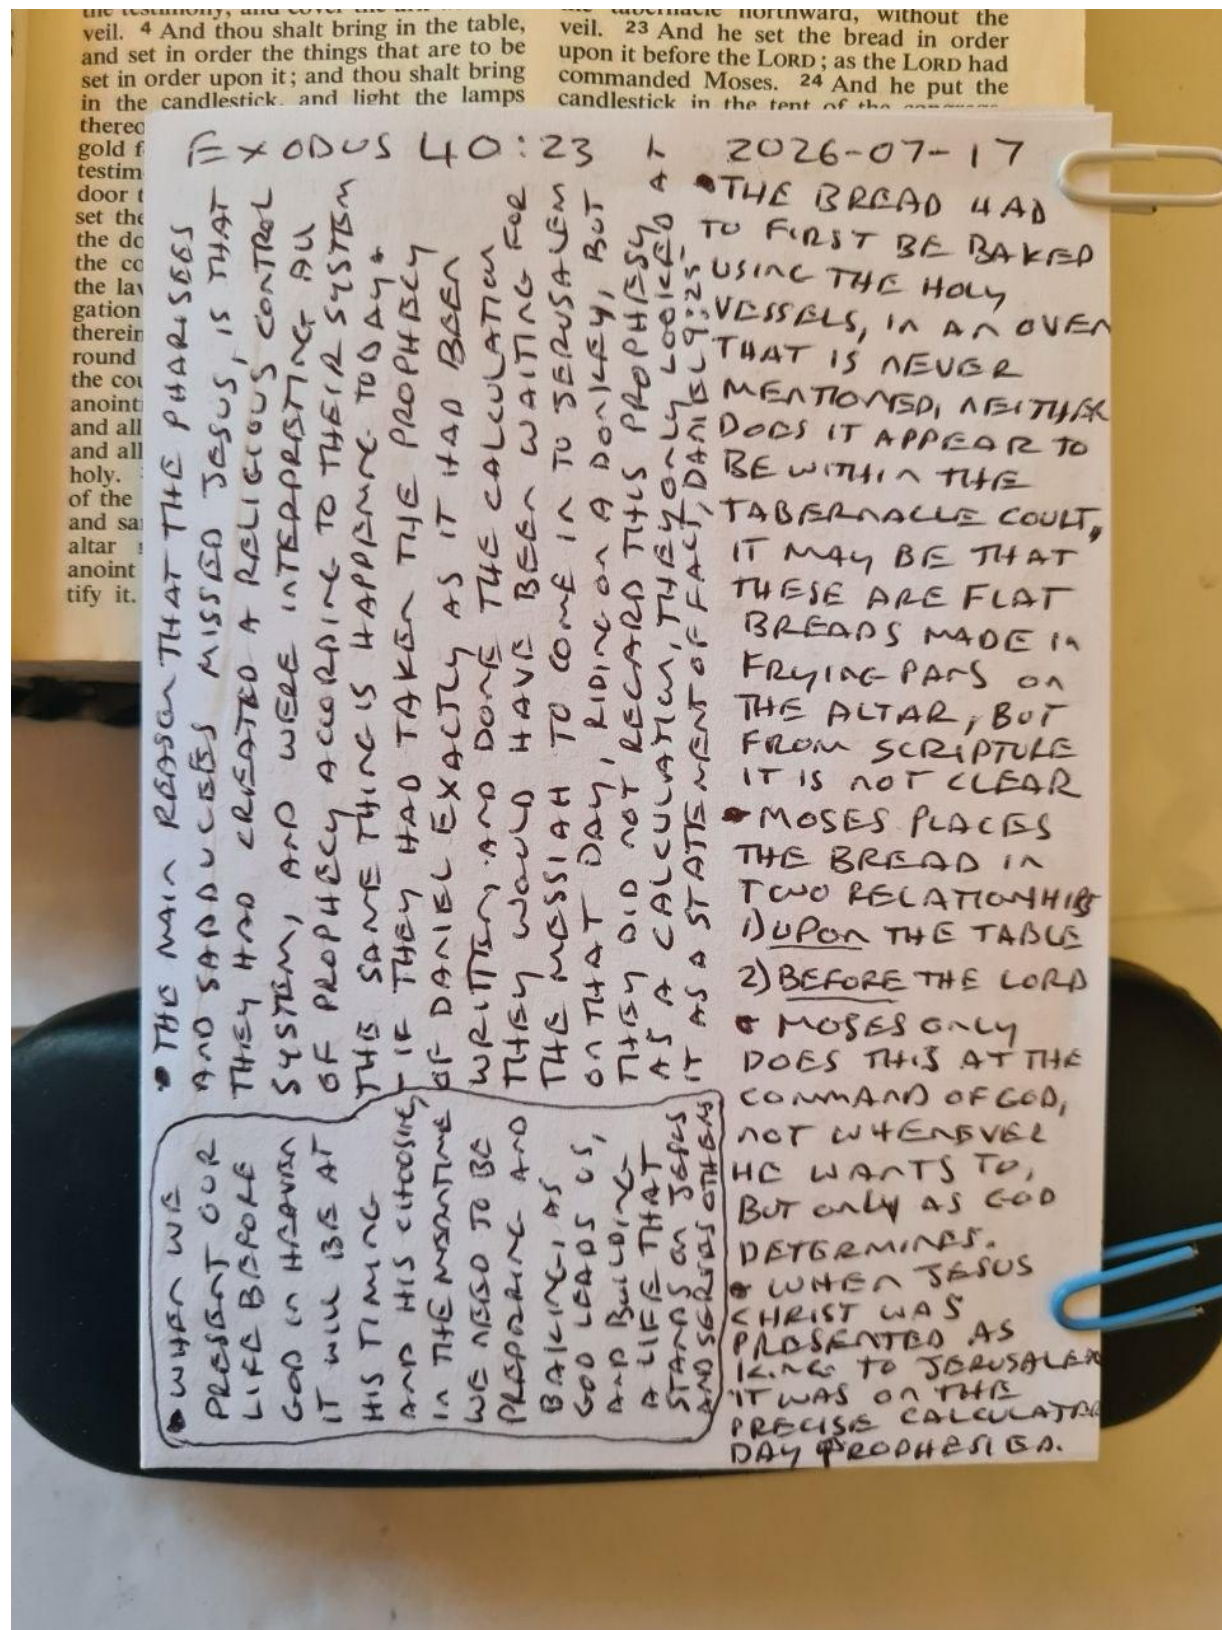 veil. 4 And thou shalt bring in the table,
and set in order the things that are to be
set in order upon it; and thou shalt bring
in the candlestick, and light the lamps
thereo
gold f
testim
door t
set the
the do
the co
the lav
gation
therein
round
the cou
anoint
and all
and all
holy.
of the
and sa
altar
anoint
tify it.
tabernacle northward, without the
veil. 23 And he set the bread in order
upon it before the LORD; as the LORD had
commanded Moses. 24 And he put the
candlestick in the tent of the
EXODUS 40:23
2026-07-17
• THE BREAD HAD
TO FIRST BE BAKED
USING THE HOLY
VESSELS, IN AN OVEN
THAT IS NEVER
MENTIONED, NEITHER
DOES IT APPEAR TO
BE WITHIN THE
TABERNACLE COURT,
IT MAY BE THAT
THESE ARE FLAT
BREADS MADE IN
FRYING PANS ON
THE ALTAR, BUT
FROM SCRIPTURE
IT IS NOT CLEAR
• MOSES PLACES
THE BREAD IN
TWO RELATIONSHIPS
1) UPON THE TABLE
2) BEFORE THE LORD
• MOSES ONLY
DOES THIS AT THE
COMMAND OF GOD,
NOT WHENEVER
HE WANTS TO,
BUT ONLY AS GOD
DETERMINES.
• WHEN JESUS
CHRIST WAS
PRESENTED AS
KING TO JERUSALEM
IT WAS ON THE
PRECISE CALCULATED
DAY PROPHESIED.
• THE MAIN REASON THAT THE PHARISEES
AND SADDUCEES MISSED JESUS, IS THAT
THEY HAD CREATED A RELIGIOUS CONTROL
SYSTEM, AND WERE INTERPRETING ALL
OF PROPHECY ACCORDING TO THEIR SYSTEM
THE SAME THING IS HAPPENING TODAY.
- IF THEY HAD TAKEN THE PROPHECY
OF DANIEL EXACTLY AS IT HAD BEEN
WRITTEN, AND DONE THE CALCULATION
THEY WOULD HAVE BEEN WAITING FOR
THE MESSIAH TO COME IN TO JERUSALEM
ON THAT DAY, RIDING ON A DONKEY, BUT
THEY DID NOT REGARD THIS PROPHESY
AS A CALCULATION, THEY ONLY LOOKED AT
IT AS A STATEMENT OF FACT, DANIEL 9:25
• WHEN WE
PRESENT OUR
LIFE BEFORE
GOD IN HEAVEN
IT WILL BE AT
HIS TIMING
AND HIS CHOOSING,
IN THE MEANTIME
WE NEED TO BE
PREPARING AND
BAKING, AS
GOD LEADS US,
AND BUILDING
A LIFE THAT
STANDS ON JESUS
AND SERVES OTHERS